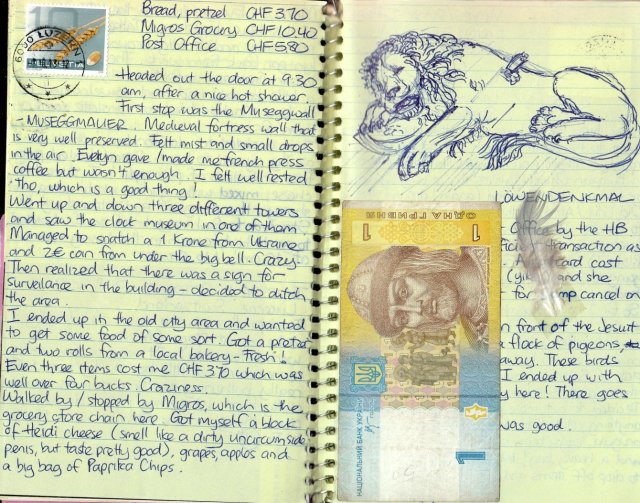 Bread, pretzel CHF 3.70
Migros Grocery CHF 10.40
Post Office CHF 5.80
6000 LUZERN
HELVETIA
-Headed out the door at 9:30
am, after a nice hot shower.
First stop was the Museggwall
-MUSEGGMAUER. Medieval fortress wall that
is very well preserved. Felt mist and small drops
in the air. Evelyn gave/made me french press
coffee but wasn't enough. I felt well rested
'tho, which is a good thing!
Went up and down three different towers
and saw the clock museum in one of them
Managed to snatch a 1 Krone from Ukraine
and 2€ coin from under the big bell. Crazy.
Then realized that there was a sign for
surveilance in the building - decided to ditch
the area.
I ended up in the old city area and wanted
to get some food of some sort. Got a pretzel
and two rolls from a local bakery - Fresh!
Even three items cost me CHF 3.70 which was
well over four bucks. Craziness.
Walked by/stopped by Migros, which is the
grocery store chain here. Got myself a block
of Heidi cheese (smell like a dirty uncircumside
penis, but taste pretty good), grapes, apples and
a big bag of Paprika Chips.
LÖWENDENKMAL
Office by the HB
transaction as
card cost
and she
for cancel on
front of the Jesuit
a flock of pigeons,
away. These birds
I ended up with
here! There goes
was good.
ОДНА ГРИВНЯ
1
НАЦІОНАЛЬНИЙ БАНК УКРАЇНИ
1